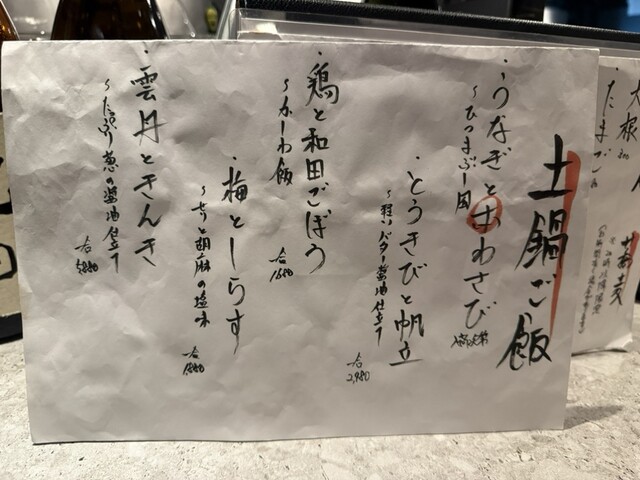 土鍋ご飯
・うなぎと山わさび
～ひつまぶし風
・とうきびと帆立
～軽いバター醤油仕立て
一合
2,980
・鶏と和田ごぼう
～かしわ飯
一合
1680
・梅としらす
～せりと胡麻の塩味
一合
1880
・雲丹ときんき
～たっぷり葱の醤油仕立て
一合
5880
大根
たまご
蕎麦